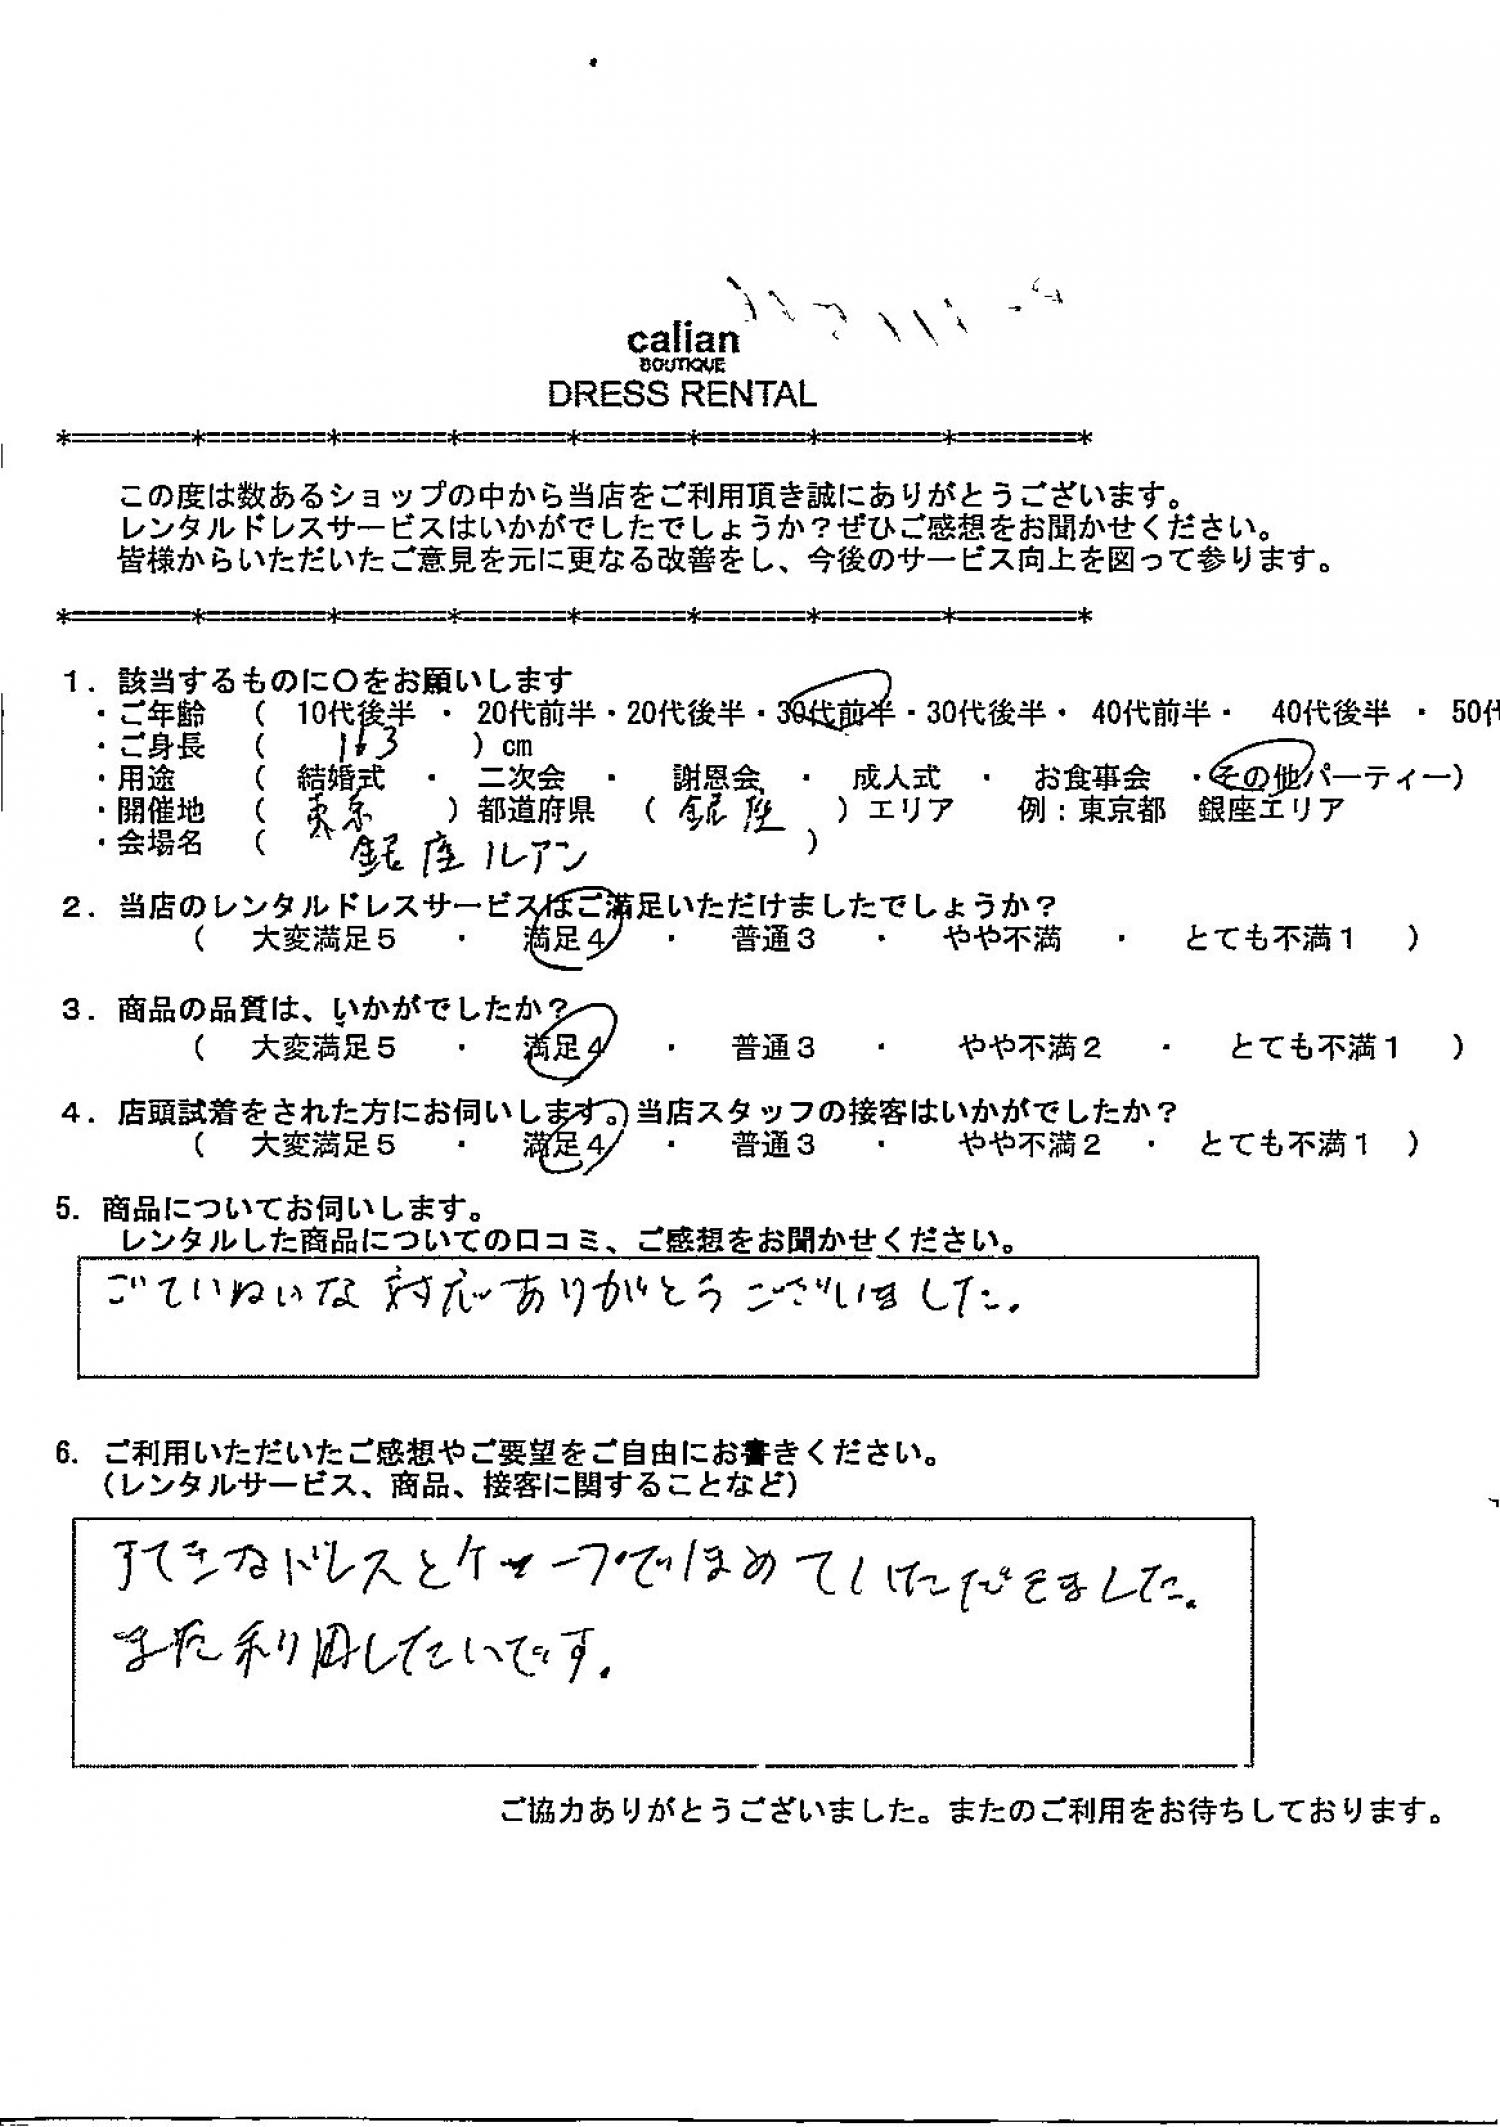 calian
BOUTIQUE
DRESS RENTAL
*========*========*=======*=======*=======*=======*========*========*
この度は数あるショップの中から当店をご利用頂き誠にありがとうございます。
レンタルドレスサービスはいかがでしたでしょうか?ぜひご感想をお聞かせください。
皆様からいただいたご意見を元に更なる改善をし、今後のサービス向上を図って参ります。
*========*========*=======*=======*=======*=======*========*========*
1. 該当するものに〇をお願いします
・ご年齢 ( 10代後半 ・ 20代前半・20代後半・30代前半・30代後半・ 40代前半・ 40代後半 ・ 50代
・ご身長 ( 163 )cm
・用途 ( 結婚式 ・ 二次会 ・ 謝恩会 ・ 成人式 ・ お食事会 ・その他パーティー)
・開催地 ( 東京 )都道府県 ( 銀座 )エリア 例:東京都 銀座エリア
・会場名 ( 銀座ルアン )
2. 当店のレンタルドレスサービスはご満足いただけましたでしょうか?
( 大変満足5 ・ 満足4 ・ 普通3 ・ やや不満 ・ とても不満1 )
3. 商品の品質は、いかがでしたか?
( 大変満足5 ・ 満足4 ・ 普通3 ・ やや不満2 ・ とても不満1 )
4. 店頭試着をされた方にお伺いします。当店スタッフの接客はいかがでしたか?
( 大変満足5 ・ 満足4 ・ 普通3 ・ やや不満2 ・ とても不満1 )
5. 商品についてお伺いします。
レンタルした商品についての口コミ、ご感想をお聞かせください。
ごていねいな対応ありがとうございました。
6. ご利用いただいたご感想やご要望をご自由にお書きください。
(レンタルサービス、商品、接客に関することなど)
すてきなドレスとケープでほめていただきました。
また利用したいです。
ご協力ありがとうございました。またのご利用をお待ちしております。